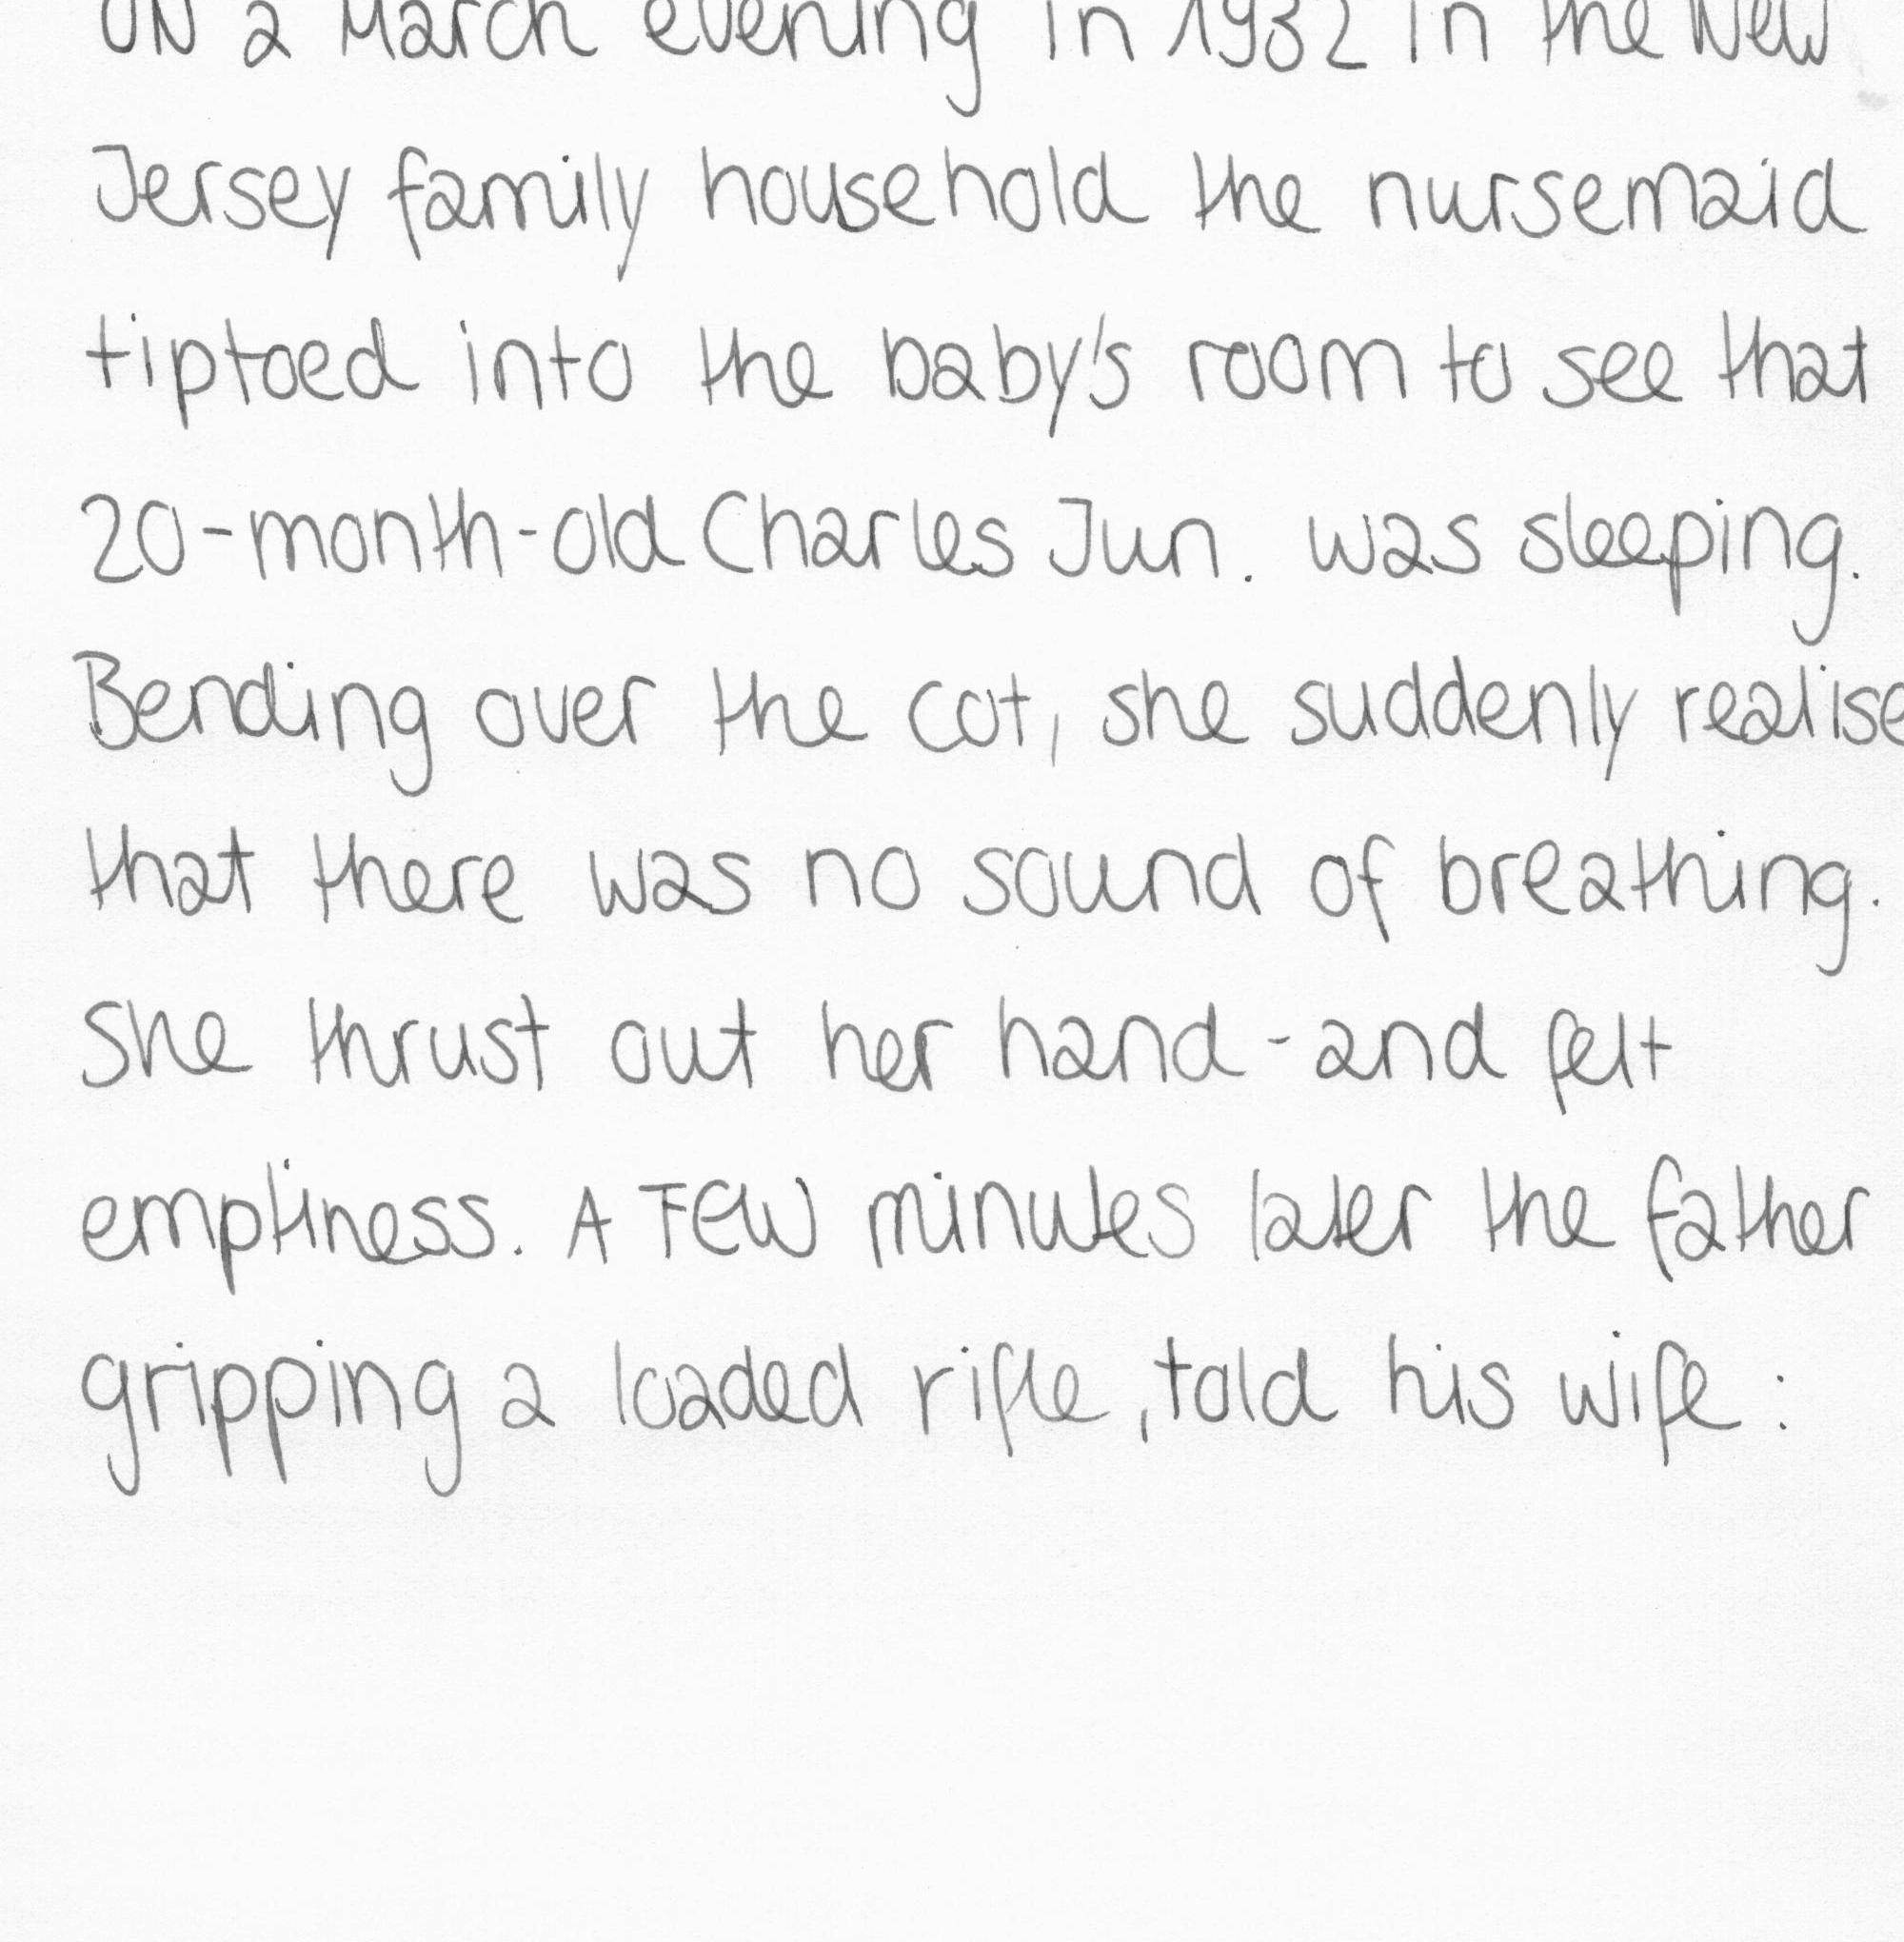 ON a March evening in 1932 in the New
Jersey family household the nursemaid
tiptoed into the baby's room to see that
20-month-old Charles Jun. was sleeping.
Bending over the cot, she suddenly realise
that there was no sound of breathing.
She thrust out her hand - and felt
emptiness. A FEW minutes later the father
gripping a loaded rifle, told his wife :